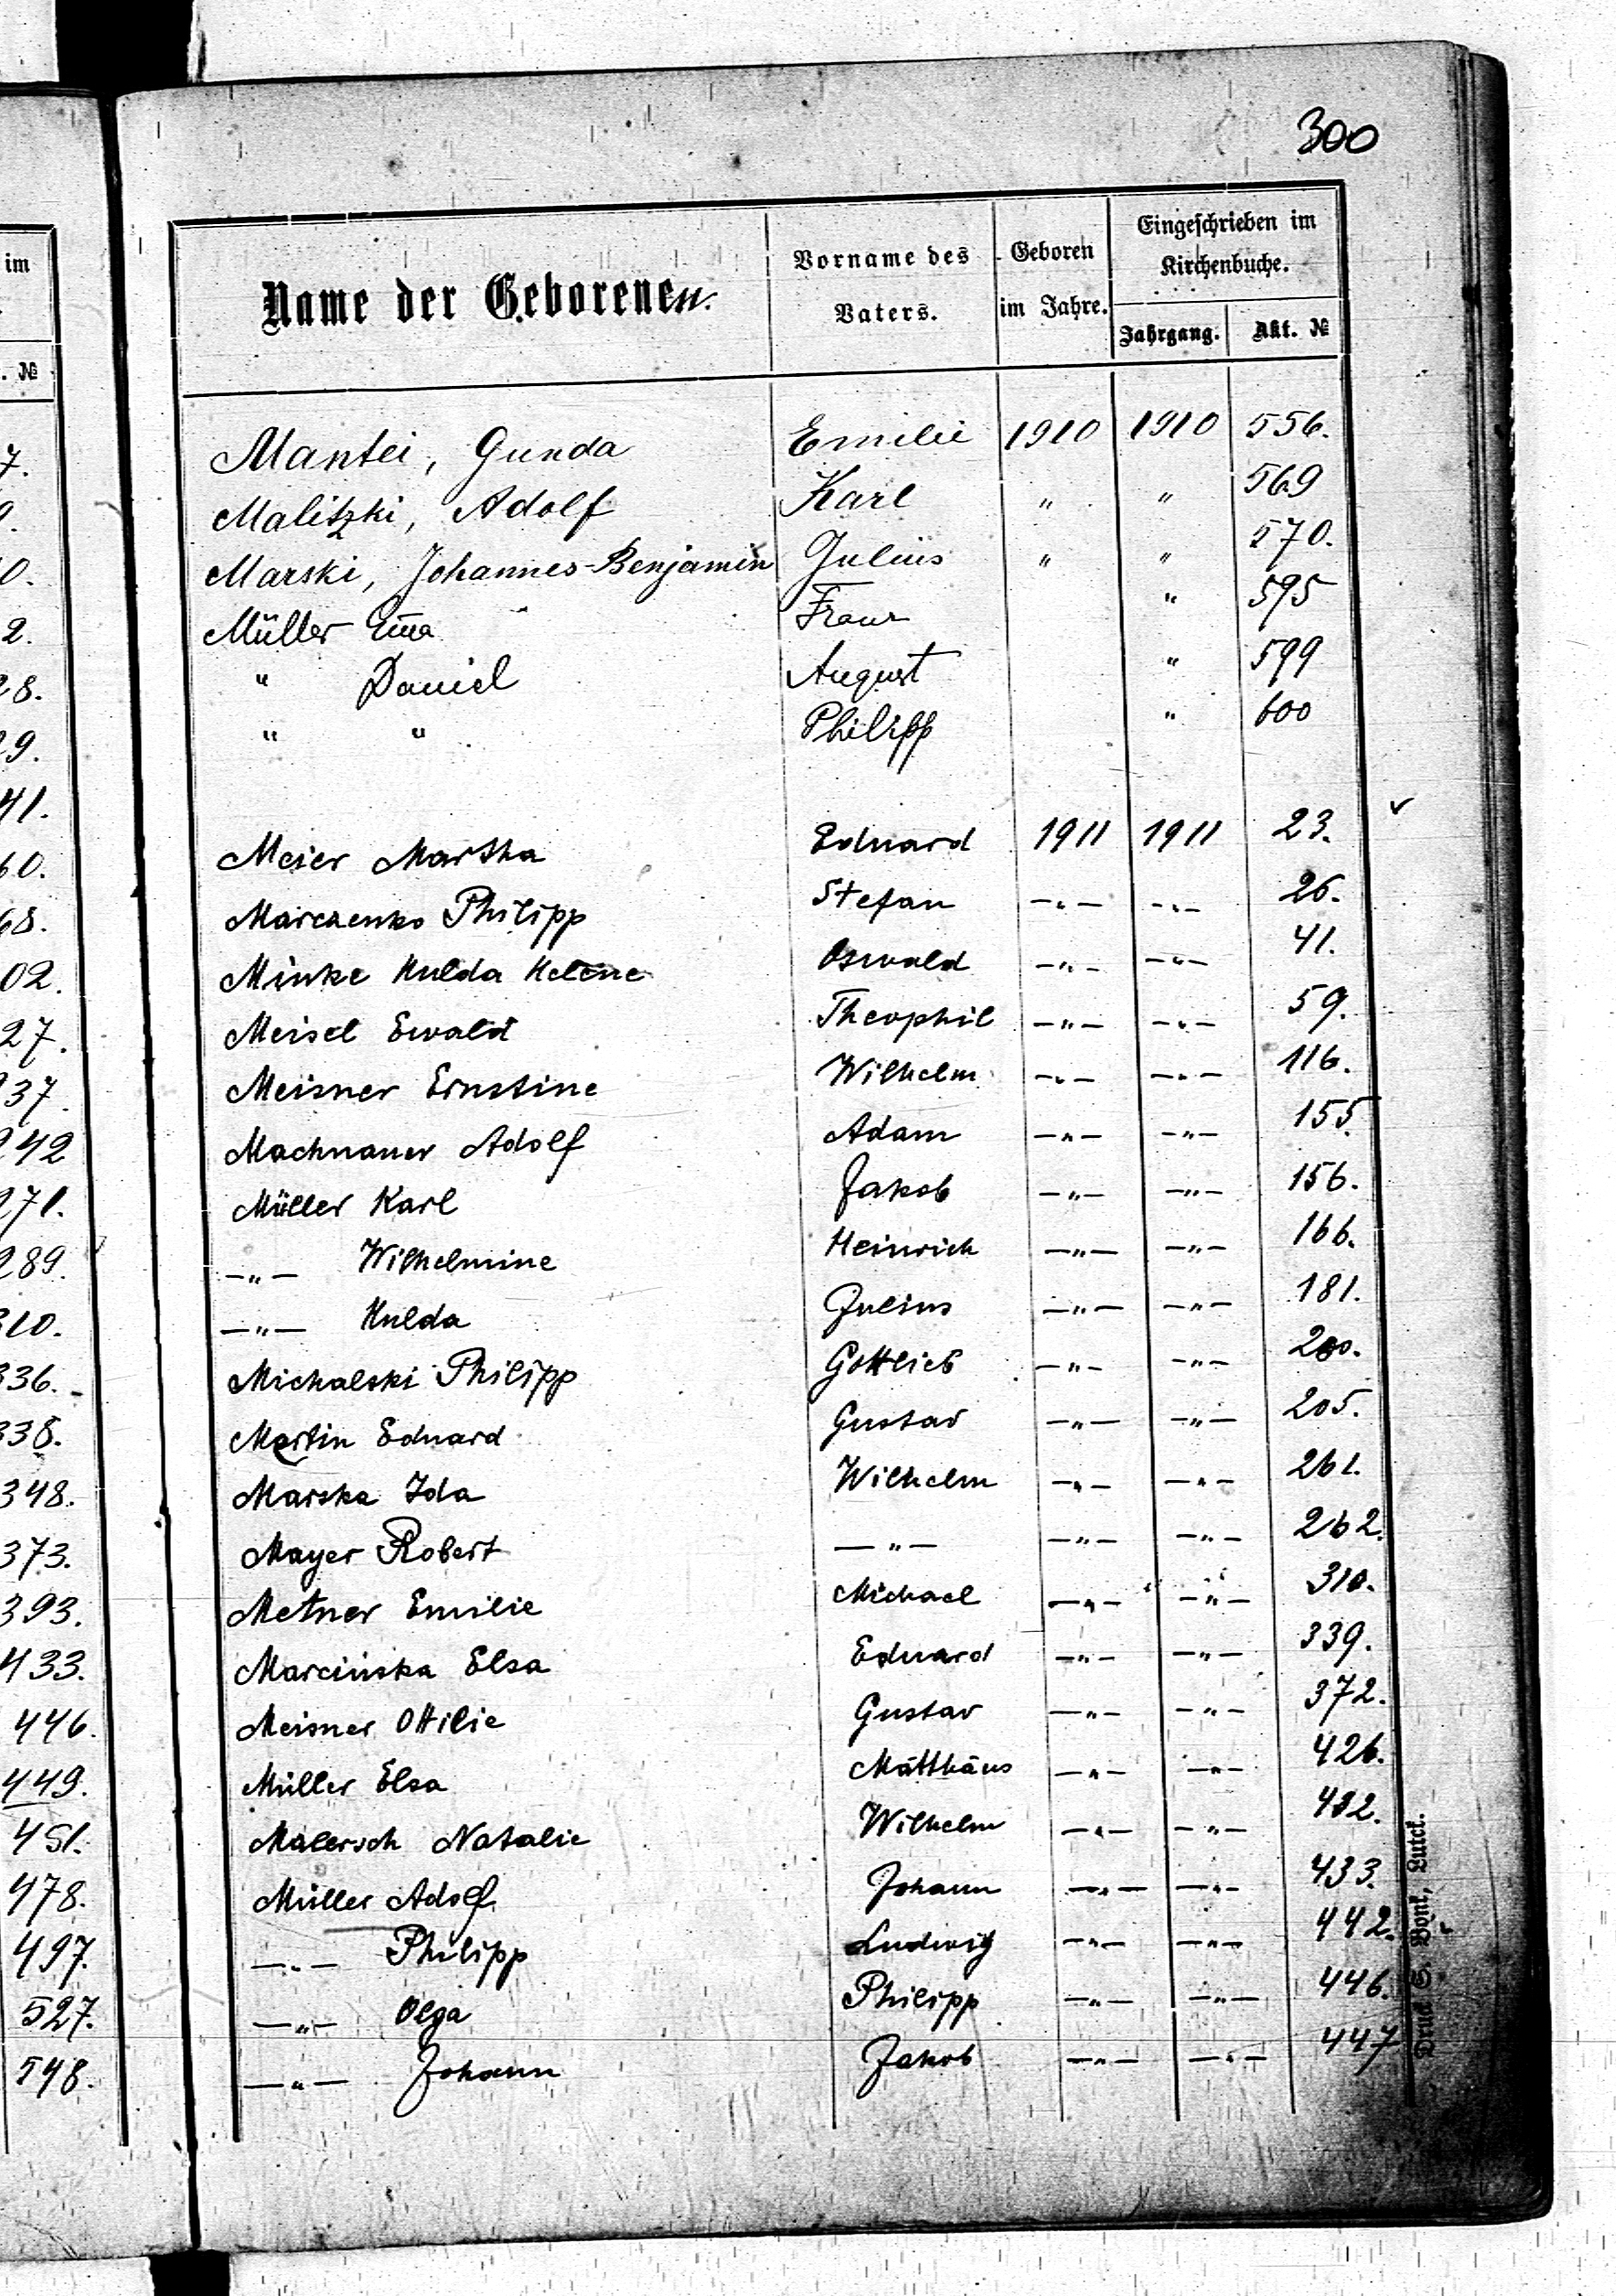 300
im
. №
7.
9.
0.
2.
28.
29.
41.
60.
68.
02.
27.
237.
242
271.
289.
310.
336.
338.
348.
373.
393.
433.
446.
449.
451.
478.
497.
527.
548.
Name der Geborenen.
Vorname des Vaters.
Geboren im Jahre.
Eingeschrieben im Kirchenbuche.
Jahrgang.
Akt. №
Mantei, Gunda Emilie 1910 1910 556.
Malitzki, Adolf Karl " " 569
Marski, Johannes-Benjamin Julius " " 570.
Müller Em̅a Franz " 595
" Daniel August " 599
" " Philipp " 600
Meier Martha Eduard 1911 1911 23.
Marczenko Philipp Stefan —"— —"— 26.
Minke Hulda Helene Oswald —"— —"— 41.
Meisel Ewald Theophil —"— —"— 59.
Meisner Ernstine Wilhelm —"— —"— 116.
Machnauer Adolf Adam —"— —"— 155.
Müller Karl Jakob —"— —"— 156.
—"— Wilhelmine Heinrich —"— —"— 166.
—"— Hulda Julius —"— —"— 181.
Michalski Philipp Gottlieb —"— —"— 200.
Martin Eduard Gustav —"— —"— 205.
Marska Ida Wilhelm —"— —"— 261.
Mayer Robert —"— —"— —"— 262.
Metner Emilie Michael —"— —"— 310.
Marcinska Elsa Eduard —"— —"— 339.
Meisner Ottilie Gustav —"— —"— 372.
Müller Elsa Matthäus —"— —"— 426.
Malersch Natalie Wilhelm —"— —"— 432.
Müller Adolf Johann —"— —"— 433.
—"— Philipp Ludwig —"— —"— 442.
—"— Olga Philipp —"— —"— 446.
—"— Johann Jakob —"— —"— 447
Druck S. Bonk, Lutck.